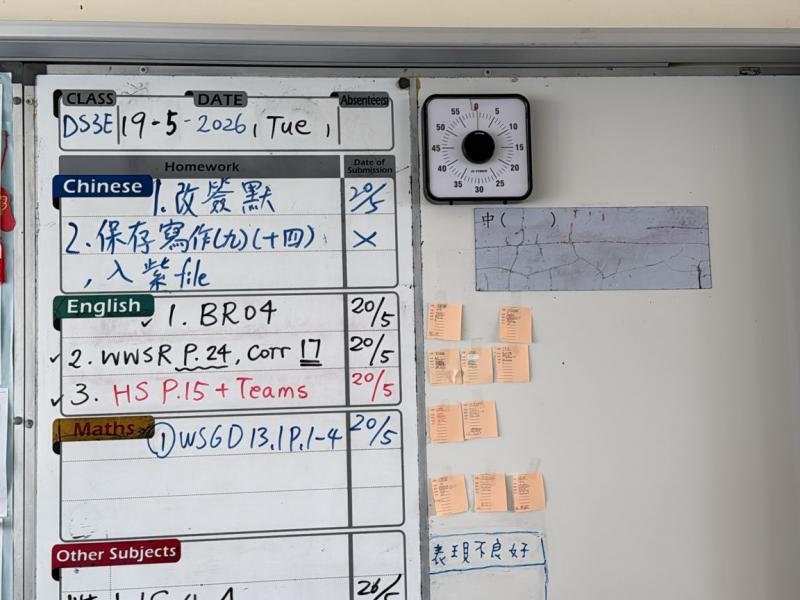 CLASS DATE Absentees
DS3E 19-5-2026, Tue,
Homework Date of Submission
Chinese
1. 改簽默 20/5
2. 保存寫作(九)(十四) ×
, 入紫 file
English
✓ 1. BR04 20/5
✓ 2. WWSR P.24, Corr 17 20/5
✓ 3. HS P.15 + Teams 20/5
Maths
① WSGD 13.1 P.1-4 20/5
Other Subjects
26/5
0 5 10 15 20 25 30 35 40 45 50 55
中( )
表現不良好